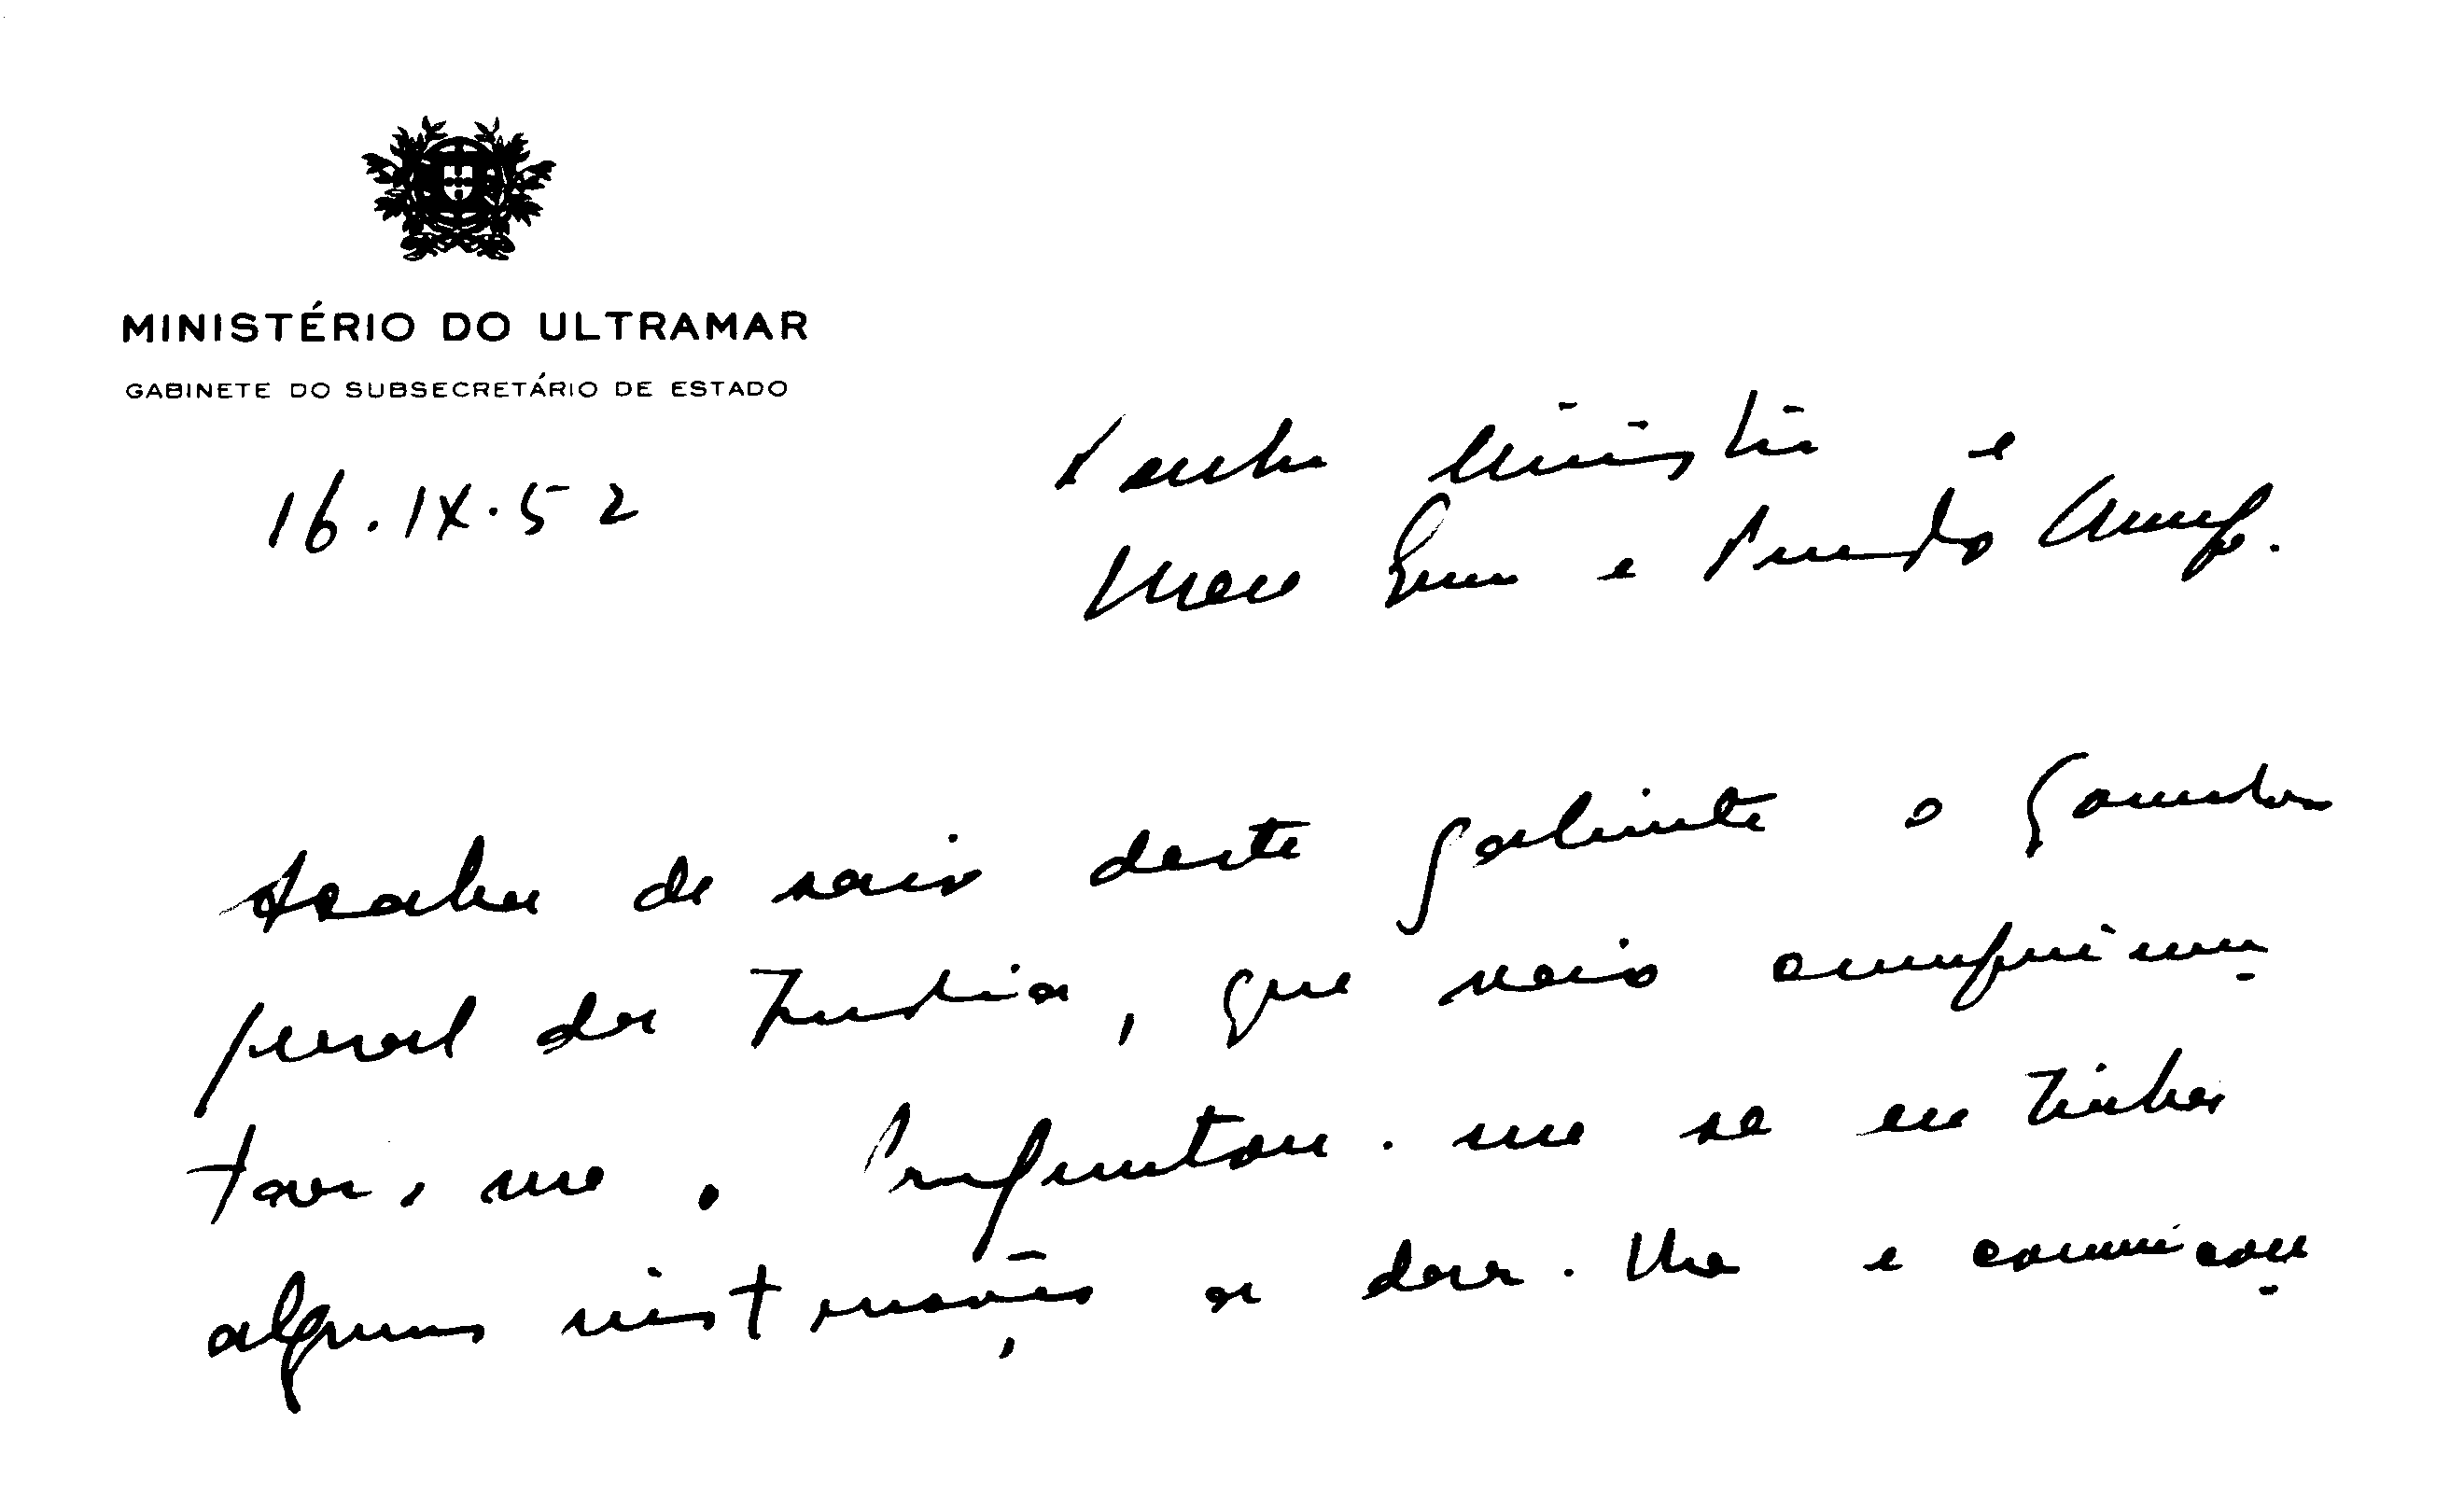 MINISTÉRIO DO ULTRAMAR
GABINETE DO SUBSECRETÁRIO DE ESTADO
16.IX.52
Senhor Ministro e
Meu Exmo e Prezado Amigo.
Acaba de sair deste gabinete o Consul
geral da Turquia, que veio cumprimen-
tar-me. Perguntou-me se eu tinha
algumas instruções a dar-lhe e comunicou-